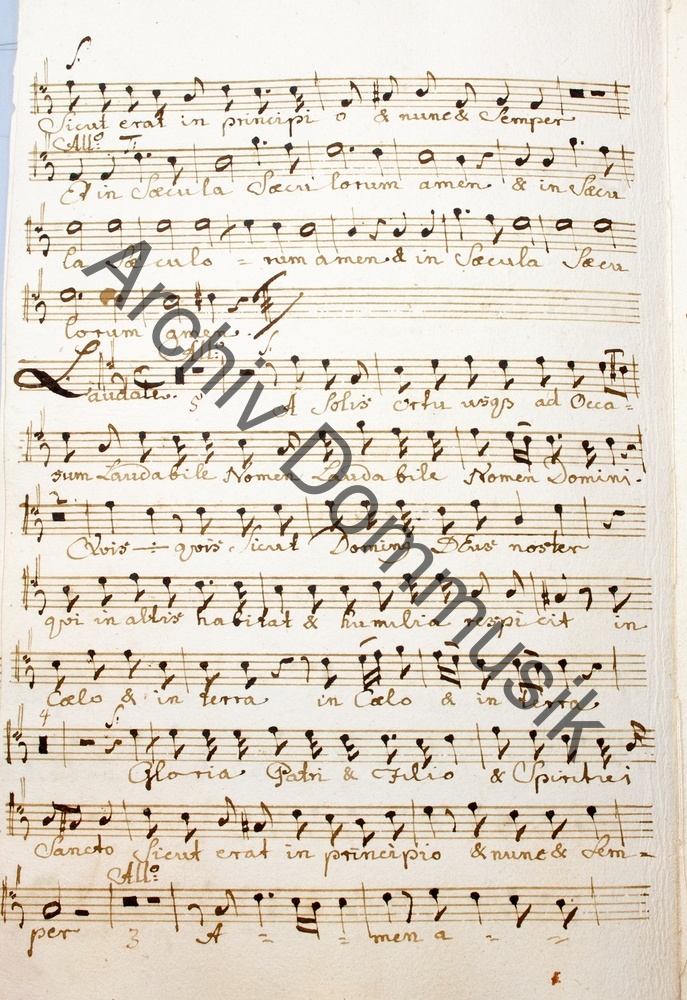 S.
Sicut erat in principi o & nunc & Semper
All:o T:
Et in Sæcula Sæcu lorum amen & in Sæcu
la Sæ culo = rum amen & in Sæcula Sæcu
lorum amen.
All:o S.
Laudate. 5 A Solis ortu usqs ad Occa=
sum Laudabile Nomen Laudabile Nomen Domini.
Qvis ÷ qvis Sicut Dominus DEus noster
qvi in altis habitat & humilia respicit in
Cœlo & in terra in Cœlo & in terra
4 S.
Gloria Patri & Filio & Spiritui
Sancto Sicut erat in principio & nunc & Sem=
All:o
per 3 A = = = men a = =
Archiv Dommusik